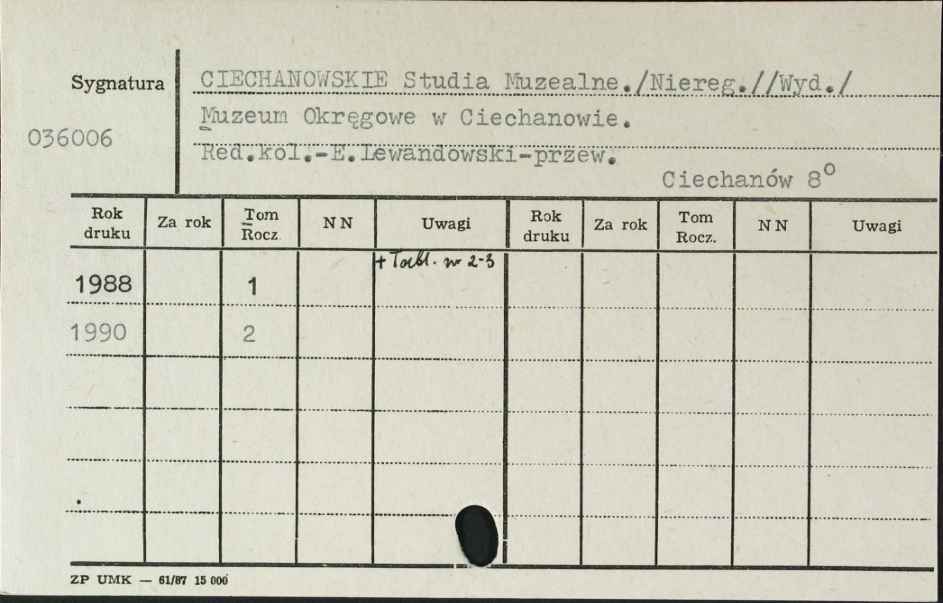 Sygnatura CIECHANOWSKIE Studia Muzealne./Niereg.//Wyd./
Muzeum Okręgowe w Ciechanowie.
036006
Red.kol.-E.Lewandowski-przew.
Ciechanów 8°
Rok druku Za rok Tom Rocz. NN Uwagi Rok druku Za rok Tom Rocz. NN Uwagi
+ Tabl. nr 2-3
1988 1
1990 2
ZP UMK — 61/87 15 000